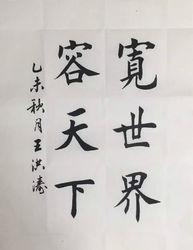 寛世界
容天下
乙未秋月王洪濤